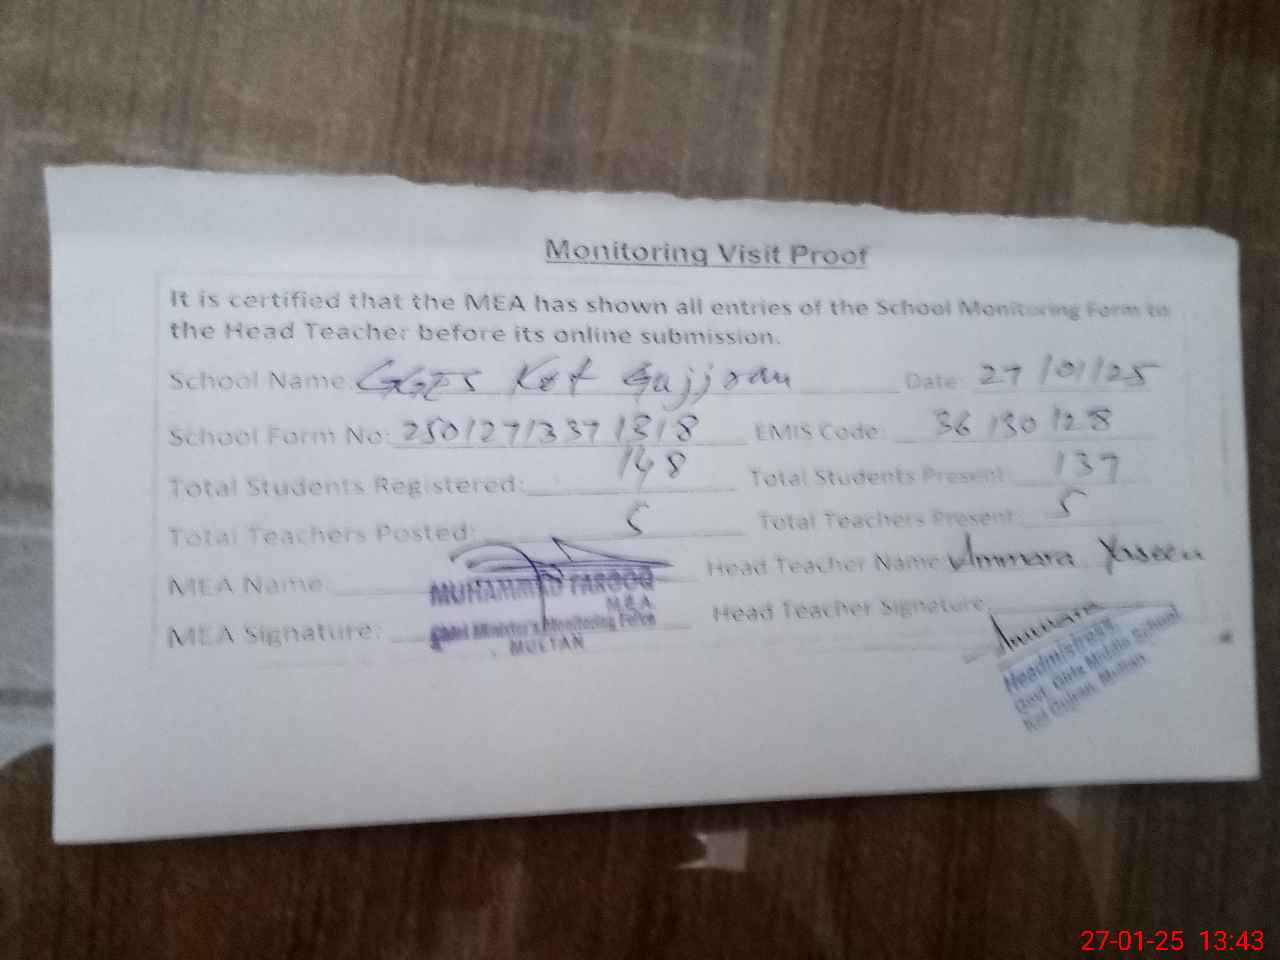 Monitoring Visit Proof
It is certified that the MEA has shown all entries of the School Monitoring Form to
the Head Teacher before its online submission.
School Name: GGES Kot Gujjran Date: 27/01/25
School Form No: 2501271337 1318 EMIS Code: 36130128
Total Students Registered: 148 Total Students Present: 137
Total Teachers Posted: 5 Total Teachers Present: 5
MEA Name: Head Teacher Name: Ammara Yaseen
MUHAMMAD FAROOQ
M.E.A
MEA Signature: Head Teacher Signature:
Chief Minister's Monitoring Force
MULTAN
Ammara
Headmistress
Govt. Girls Middle School
Kot Gujran, Multan
27-01-25 13:43